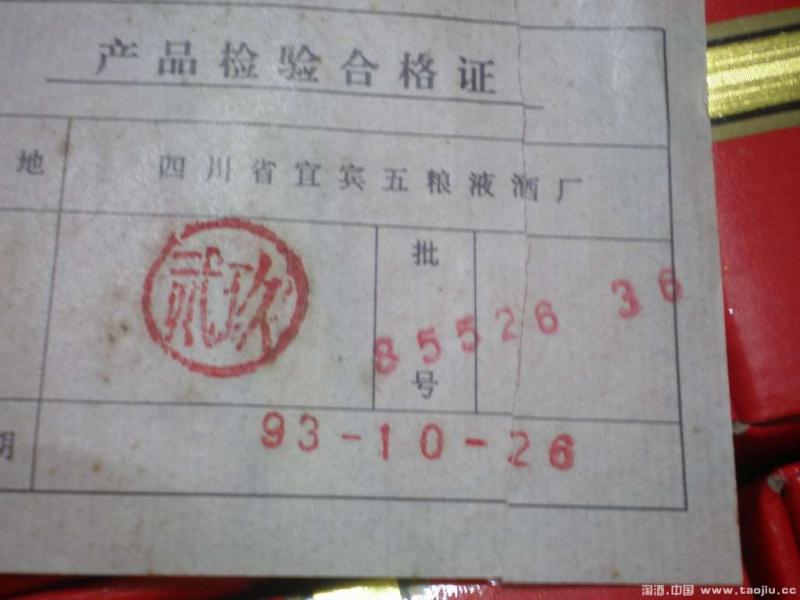 产品检验合格证
地 四川省宜宾五粮液酒厂
贰玖 批号 85526 36
期 93-10-26
淘酒.中国 www.taojiu.cc